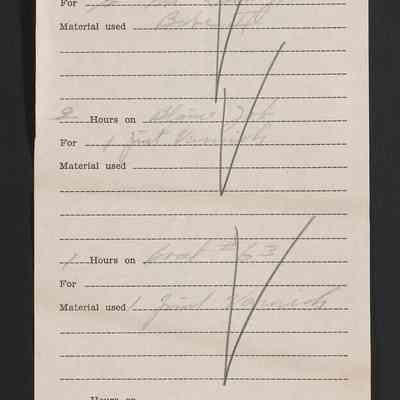 For
Material used
2 Hours on
For 1 pint Varnish
Material used
1 Hours on boat #63
For
Material used 1 pint Varnish
Hours on